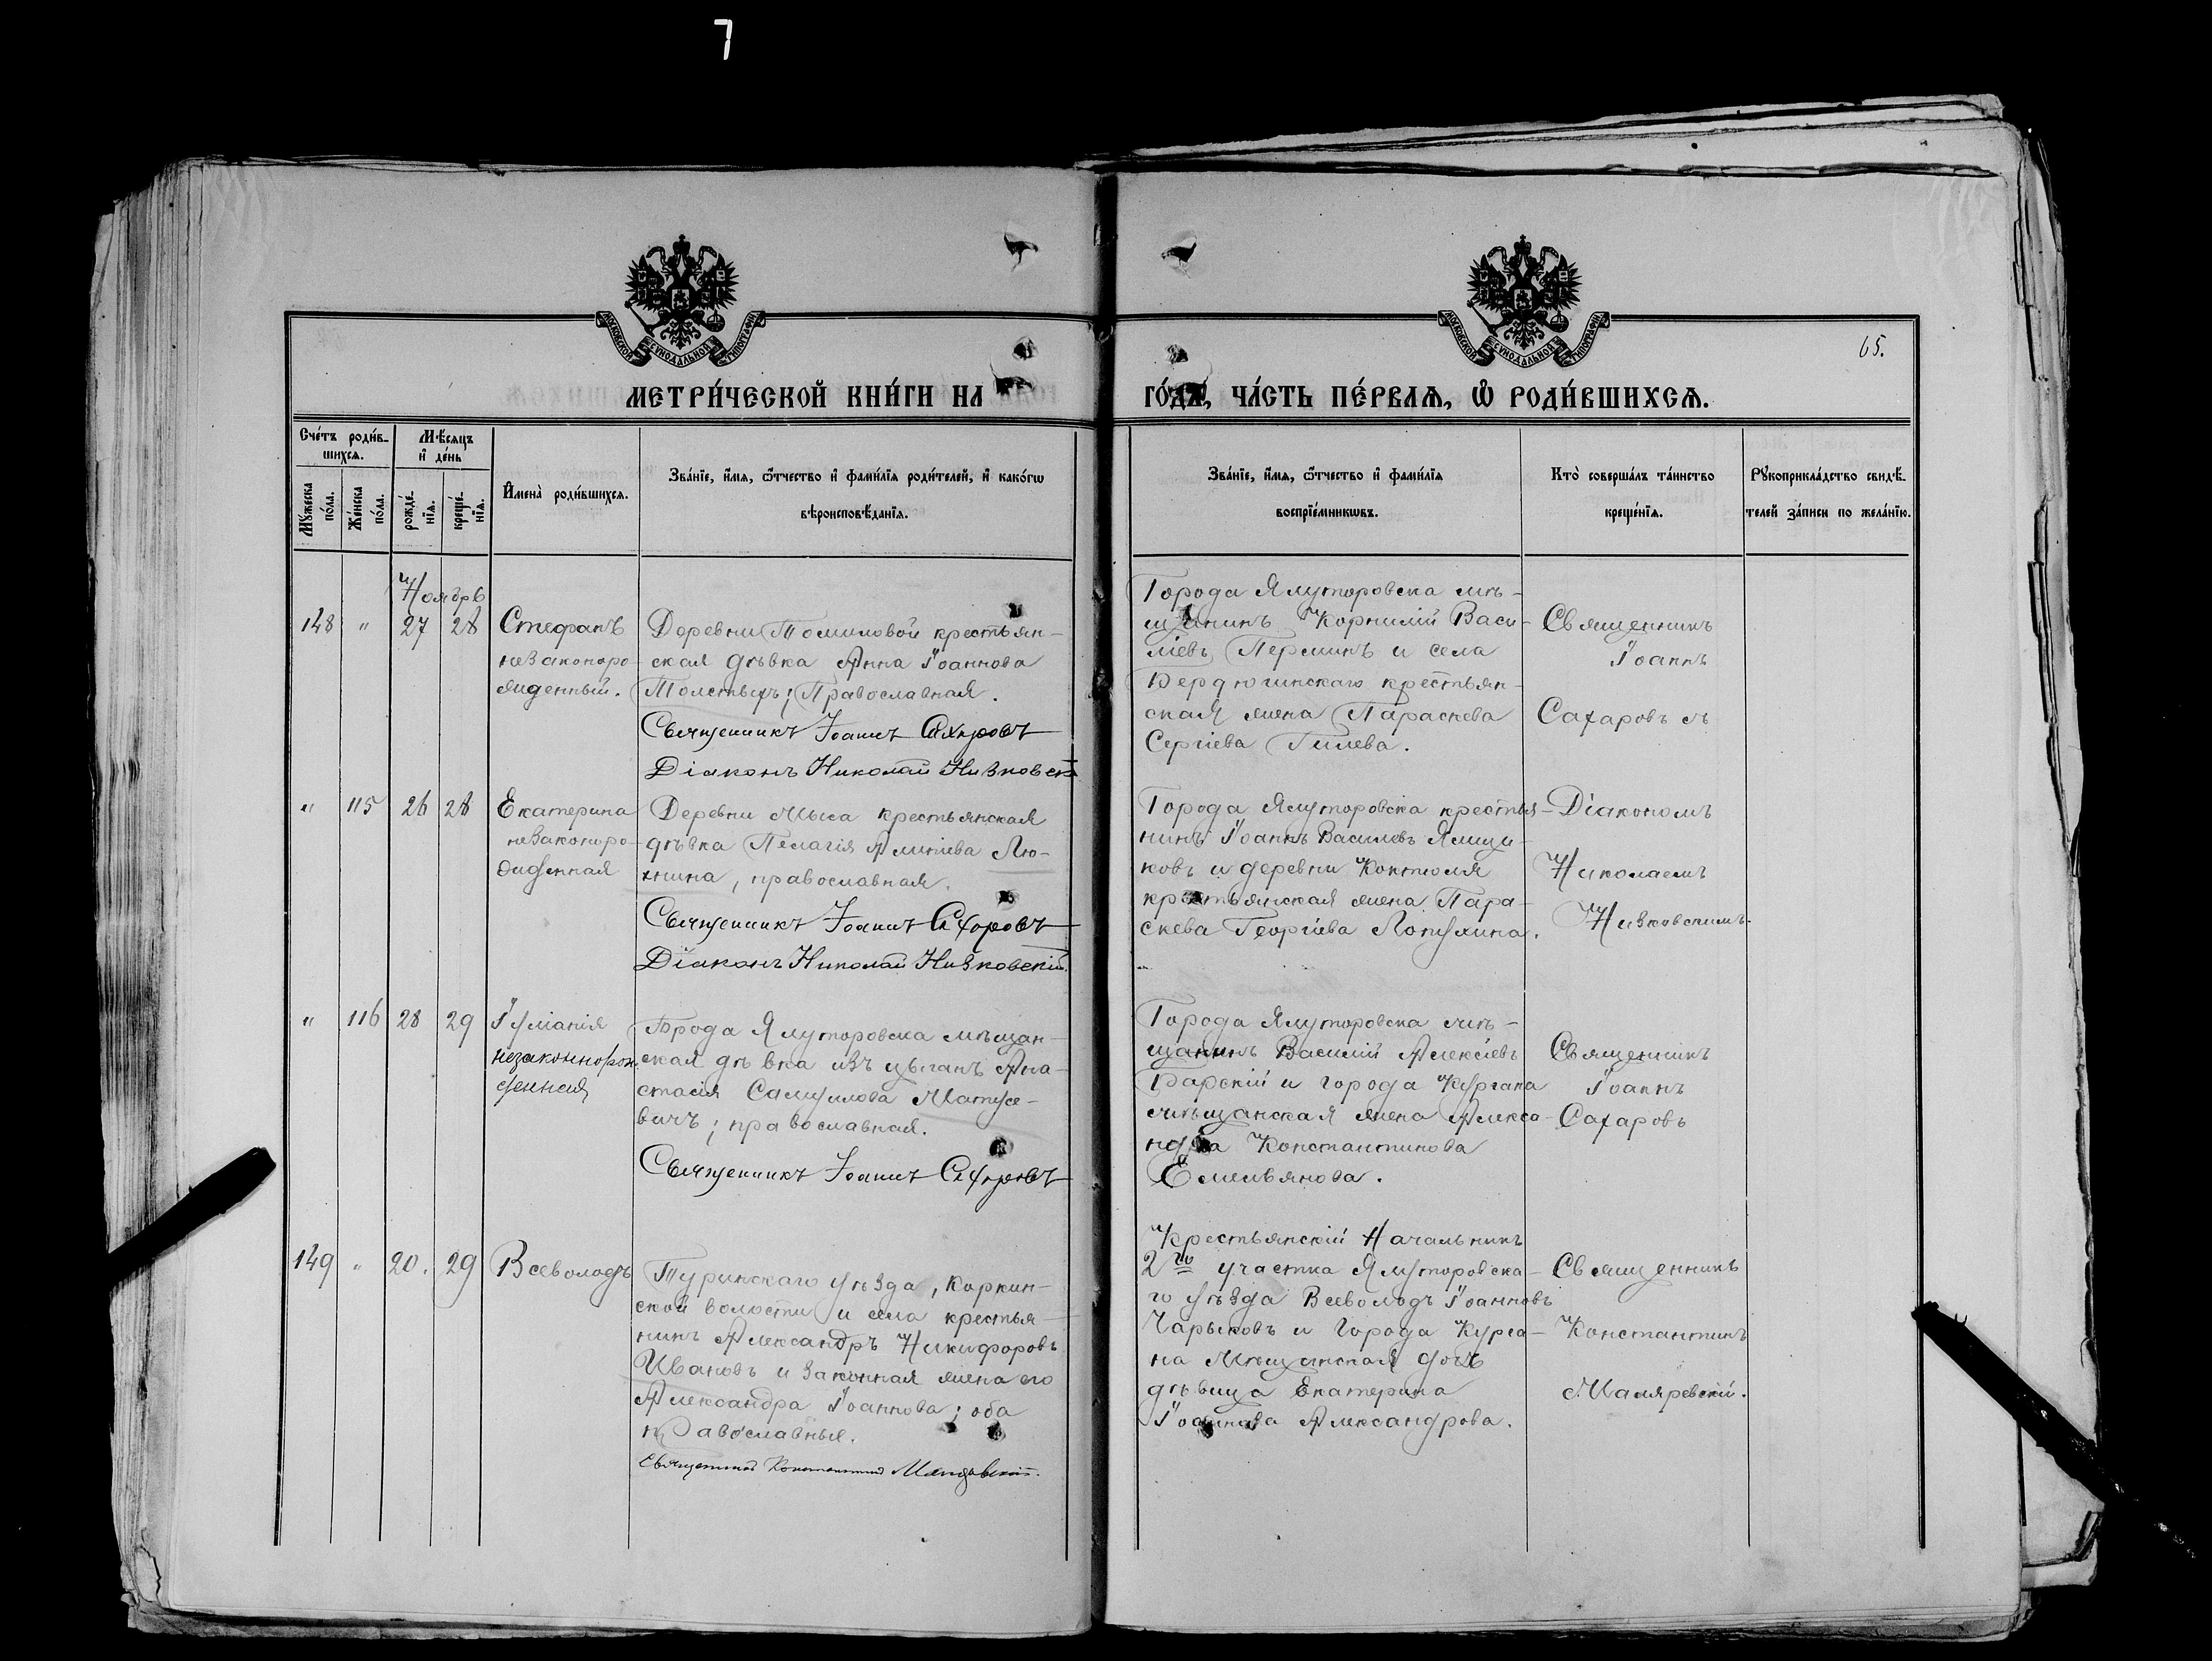 7
МОСКОВСКОЙ СѴНОДАЛЬНОЙ ТИПОГРАФІИ
МОСКОВСКОЙ СѴНОДАЛЬНОЙ ТИПОГРАФІИ
65.
МЕТРИ́ЧЕСКОЙ КНИ́ГИ НА
ГО́ДЪ, ЧА́СТЬ ПЕ́РВАЯ, Ѡ҆ РОДИ́ВШИХСЯ.
Сче́тъ роди́в-
шихся.
Мѣ́сяцъ
и҆ де́нь
Мꙋ́жеска
по́ла.
Же́нска
по́ла.
рожде́-
нїя.
креще́-
нїя.
И҆мена̀ роди́вшихся.
Зва́нїе, и҆́мя, ѻ҆́тчество и҆ фами́лїя роди́телей, и҆ како́гѡ
вѣроисповѣ́данїя.
Зва́нїе, и҆́мя, ѻ҆́тчество и҆ фами́лїя
воспрїе́мникѡвъ.
Кто̀ соверша́лъ та́инство
креще́нїя.
Рꙋкоприкла́дство свидѣ́-
телей за́писи по жела́нїю.
Ноябрь
148 " 27 28
Стефанъ
незаконоро-
жденный.
Деревни Томиловой крестьян-
ская дѣвка Анна Іоаннова
Толстыхъ; Православная.
Священникъ Іоаннъ Сахаровъ
Діаконъ Николай Низковскі
Города Ялуторовска мѣ-
щанинъ Корнилій Васи-
ліевъ Перминъ и села
Бердюгинскаго крестьян-
ская жена Параскева
Сергіева Гилева.
Священникъ
Іоаннъ
Сахаровъ
" 115 26 28
Екатерина
незаконоро-
жденная
Деревни Мыса крестьянская
дѣвка Пелагія Лю-
хнина, православная.
Священникъ Іоаннъ Сахаровъ
Діаконъ Николай Низковскій.
Города Ялуторовска крестья-
нинъ Іоаннъ Василевъ Ямщи-
ковъ и деревни Коктюля
крестьянская жена Пара-
скева Георгіева Лопухина.
Діакономъ
Николаемъ
Низковскимъ.
" 116 28 29
Іуліанія
незаконнорож-
денная
Города Ялуторовска мѣщан-
ская дѣвка изъ цыганъ Ана-
стасія Самуилова Матусе-
вичъ; православная.
Священникъ Іоаннъ Сахаровъ
Города Ялуторовска мѣ-
щанинъ Василій Алексіевъ
Барскій и города Кургана
мѣщанская жена Алекса-
ндра Константинова
Емельянова.
Священникъ
Іоаннъ
Сахаровъ
149 " 20. 29
Всеволодъ
Туринскаго уѣзда, Коркин-
ской волости и села крестья-
нинъ Александръ Никифоровъ
Ивановъ и законная жена его
Александра Іоаннова; оба
православные.
Священникъ Константинъ
Крестьянскій Начальникъ
2го участка Ялуторовска-
го уѣзда Всеволодъ Іоанновъ
Чарыковъ и Города Курга-
на Мѣщанская дочь
дѣвица Екатерина
Іоаннова Александрова.
Священникъ
Константинъ
Маляревскій.